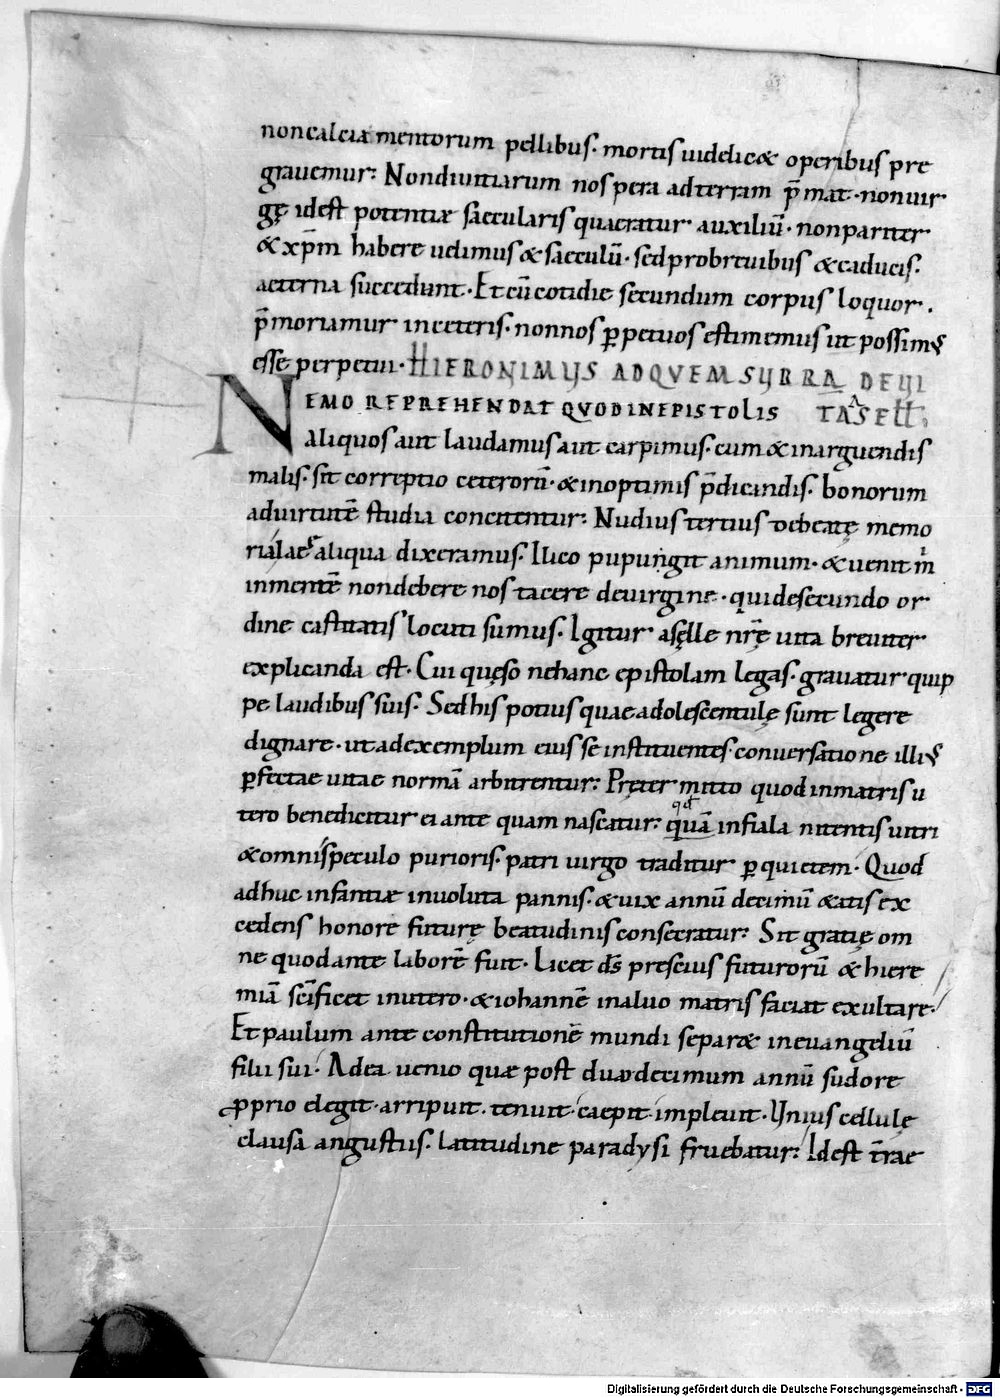 non calciamentorum pellibus. mortis uidelicet operibus pre
grauemur: Non diuitiarum nos pera ad terram p̄mat. non uir
gę idest potentiæ sæcularis quæratur auxiliū. non pariter
& xp̄m habere uelimus & sæculū. sed pro breuibus & caducis.
aeterna succedunt. Et cū cotidie secundum corpus loquor.
p̄moriamur in ceteris. non nos ꝑpetuos estimemus ut possimꝰ
esse perpetui. HIERONIMUS AD QVEM SUPRA DE UI
NEMO REPREHENDAT QVOD IN EPISTOLIS TA ASELL.
aliquos aut laudamus aut carpimus. cum & in arguendis
malis. sit correptio ceterorū. & in optimis p̄dicandis. bonorum
ad uirtutē studia concitentur: Nudius tertius de beatę memo
riæ lae aliqua dixeramus. Ilico pupungit animum. & uenit m̄
in mentē non debere nos tacere de uirgine. qui de secundo or
dine castitatis locuti sumus. Igitur asęlle nr̄ę uita breuiter
explicanda est. Cui quęso ne hanc epistolam legas. grauatur quip
pe laudibus suis. Sed his potius quae adolescentulę sunt legere
dignare. ut ad exemplum eius se instituentes. conuersatione illiꝰ
ꝑfectae uitae normā arbitrentur: Pręter mitto quod in matris u
tero benedicitur ei ante quam nascatur: quā in fiala nitentis uitri
& omni speculo purioris. patri uirgo traditur ꝑ quietem. Quod
adhuc infantiæ inuoluta pannis. & uix annū decimū &atis ex
cedens honore futurę beatudinis consecratur: Sit gratię om
ne quod ante laborē fuit. Licet d̄s prescius futurorū & hiere
miā sc̄ificet in utero. & iohannē in aluo matris faciat exultare.
Et paulum ante constitutionē mundi separæ in euangeliū
filii sui. Ad ea uenio quæ post duodecimum annū sudore
ꝓprio elegit. arripuit. tenuit. caepit. impleuit. Unius cellulę
clausa angustiis. latitudine paradysi fruebatur: Idest terrae